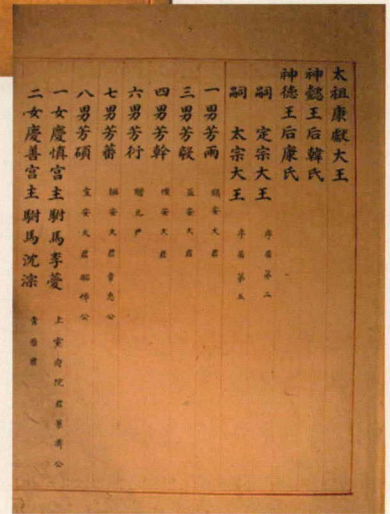 太祖康獻大王
神懿王后韓氏
神德王后康氏
嗣 定宗大王 序居第二
嗣 太宗大王 序居第五
一男芳雨 鎮安大君
三男芳毅 益安大君
四男芳幹 懷安大君
六男芳衍 贈元尹
七男芳蕃 撫安大君 章惠公
八男芳碩 宜安大君 昭悼公
一女慶慎宮主駙馬李薆 上黨府院君景肅公
二女慶善宮主駙馬沈淙 青原君